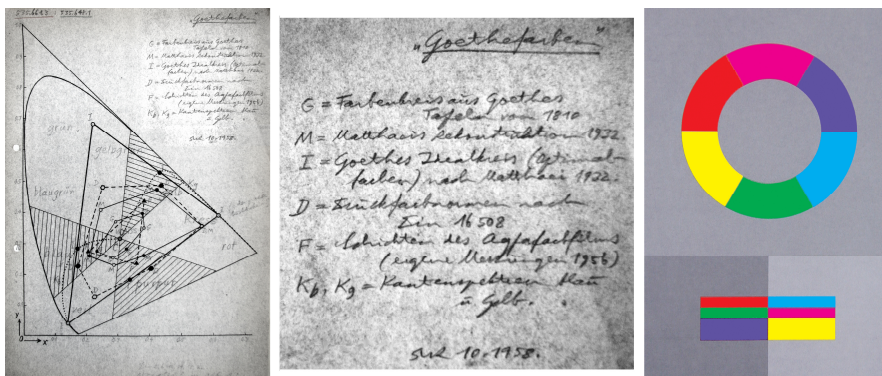 535.661.3 : 535.641.1
„Goethefarben“
G = Farbenkreis aus Goethes
Tafeln von 1810
M = Matthaeis Rekonstruktion 1932.
I = Goethes Idealkreis (Optimal-
farben) nach Matthaeis 1932.
D = Druckfarbnormen nach
Din 16508
F = Schichten des Agfafarbfilms
(eigene Messungen 1956)
Kb, Kg = Kantenspektren Blau
u. Gelb.
10.1958.
grün
gelbgrün
blaugrün
rot
purpur
I
Kg
y
x
„Goethefarben“
G = Farbenkreis aus Goethes
Tafeln von 1810
M = Matthaeis Rekonstruktion 1932.
I = Goethes Idealkreis (Optimal-
farben) nach Matthaeis 1932.
D = Druckfarbnormen nach
Din 16508
F = Schichten des Agfafarbfilms
(eigene Messungen 1956)
Kb, Kg = Kantenspektren Blau
u. Gelb.
10.1958.